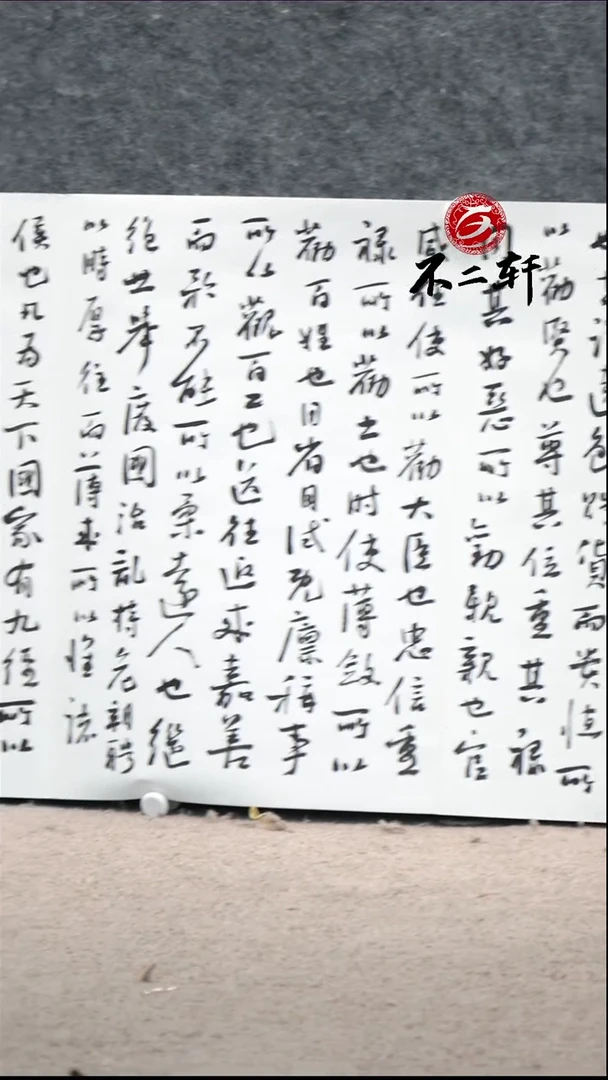 遠色賤貨而贵德所
以勸賢也尊其位重其禄
同其好惡所以勸親親也官
盛任使所以勸大臣也忠信重
禄所以勸士也时使薄斂所以
勸百姓也日省月试既廩稱事
所以勸百工也送往迎来嘉善
而矜不能所以柔遠人也繼
绝世舉廢國治乱持危朝聘
以時厚往而薄来所以懷諸
侯也凡為天下國家有九經所以
不二轩